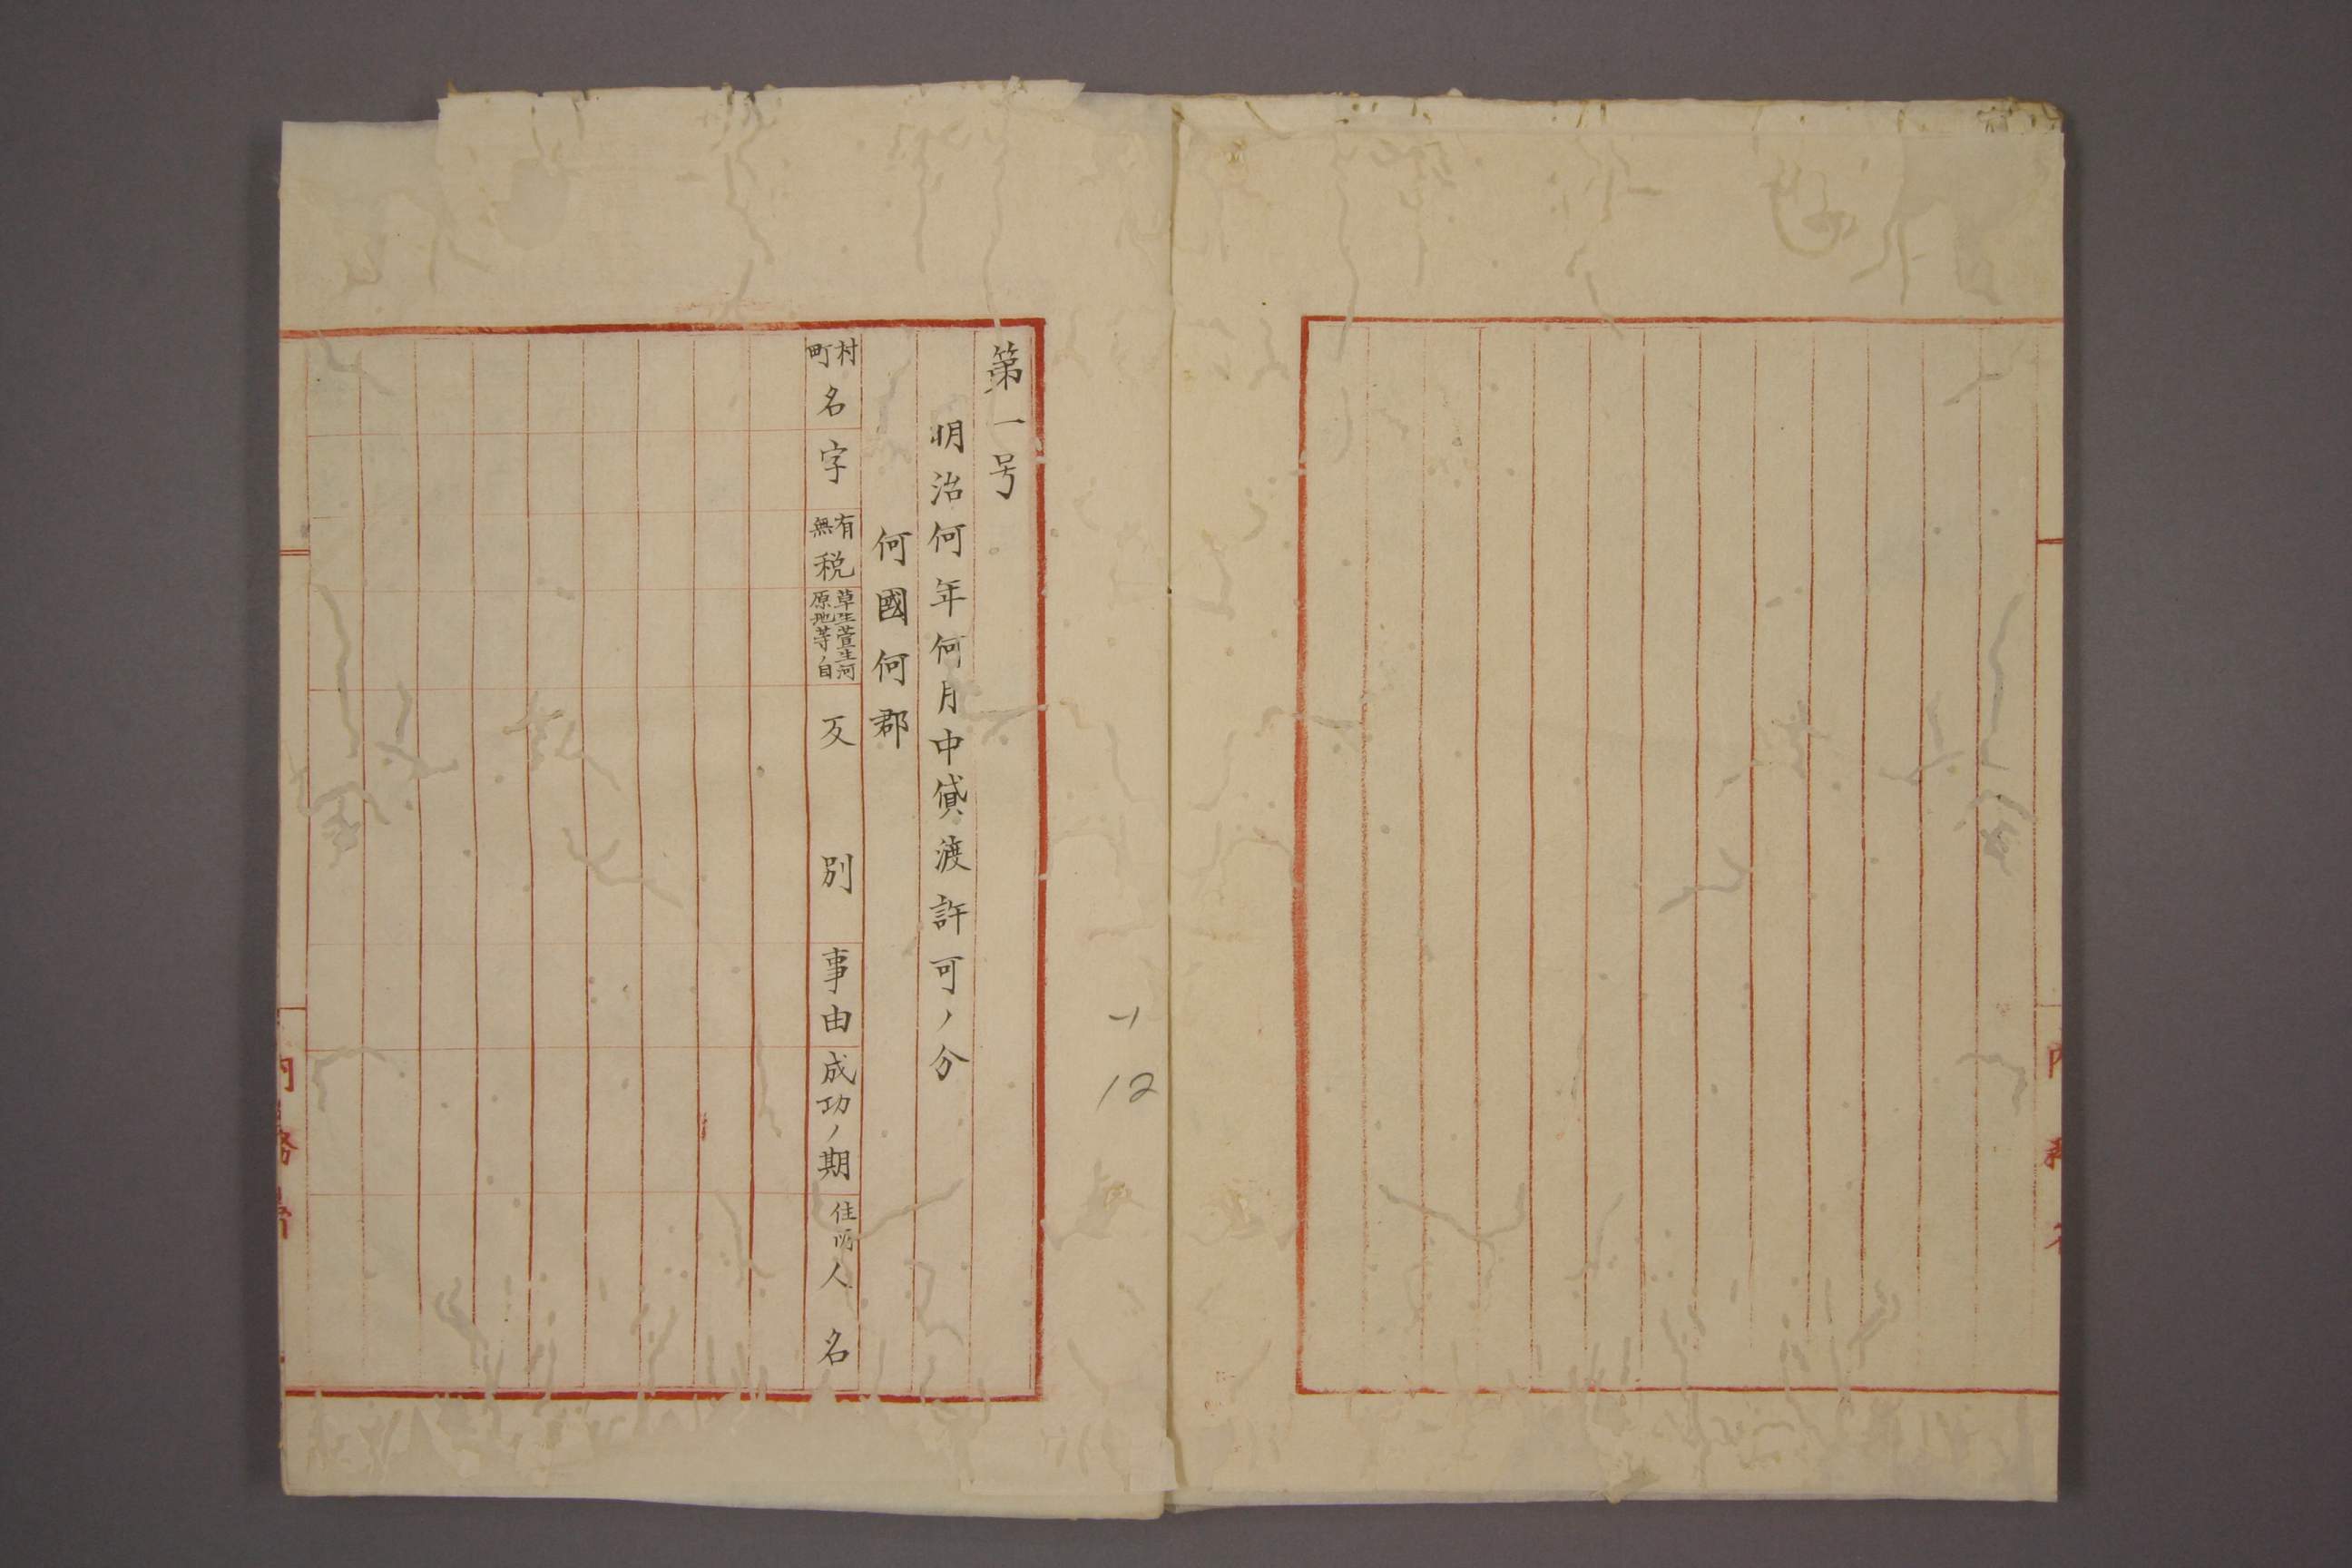 第一号
明治何年何月中貸渡許可ノ分
何國何郡
村町名
字
有無税
草生萱生河原地等ノ自
反別
事由
成功ノ期
住所人名
内務省
12